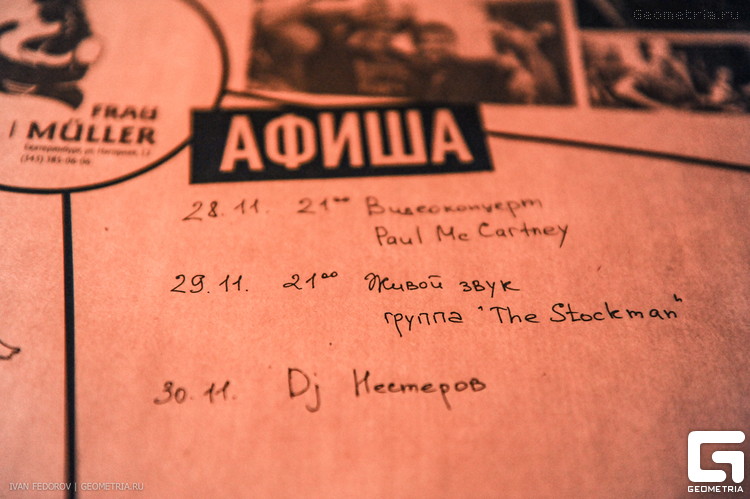 Geometria.ru
FRAU
MÜLLER
АФИША
28.11. 21⁰⁰ Видеоконцерт
Paul Mc Cartney
29.11. 21⁰⁰ Живой звук
группа "The Stockman"
30.11. Dj Нестеров
IVAN FEDOROV | GEOMETRIA.RU
GEOMETRIA